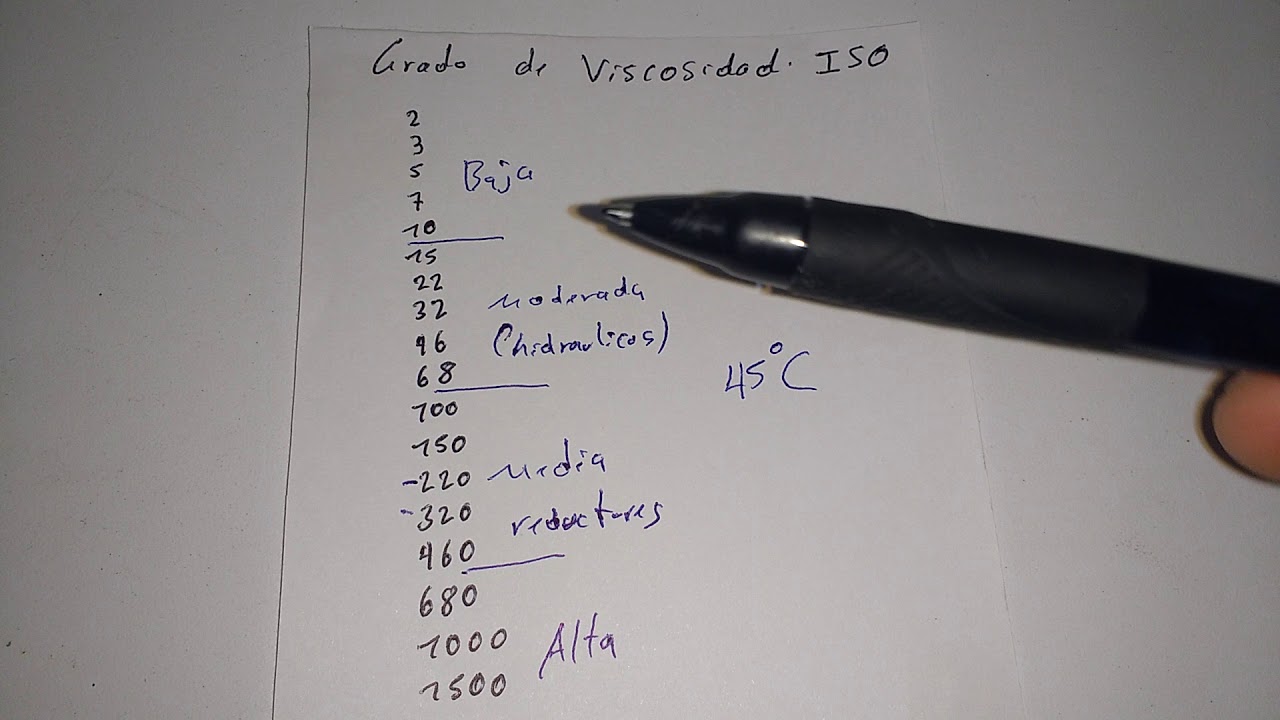 Grado de Viscosidad. ISO
2
3
5 Baja
7
10
15
22
32 Moderada
46 (hidraulicos)
68
45°C
100
150
-220 Media
-320 reductores
460
680
1000 Alta
1500